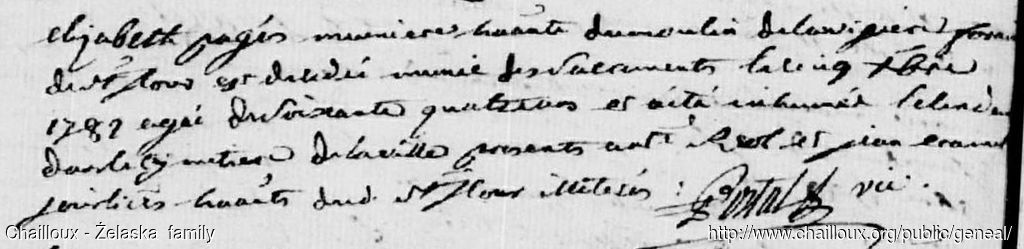 elizabeth pagés muniere habite du moulin de la
de st flour est décédé munie des sacrements le cinq Xbre
1782 agée de soixante quatre ans et a été inhumée le lendem
dans le cymetiere de la ville presents ant et jean
habits dud st flour illiterés : Portal vic.
Chailloux - Żelaska family
http://www.chailloux.org/public/geneal/